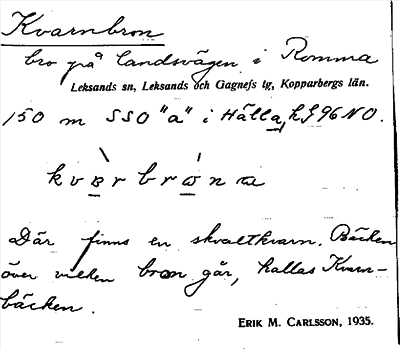 Kvarnbron
bro på landsvägen i Romma
Leksands sn, Leksands och Gagnefs tg, Kopparbergs län.
150 m SSO "a" i Hälla, k§96NO.
kvɐrbrona
Där finns en skvaltkvarn. Bäcken
över vilken bron går, kallas Kvarn-
bäcken.
ERIK M. CARLSSON, 1935.